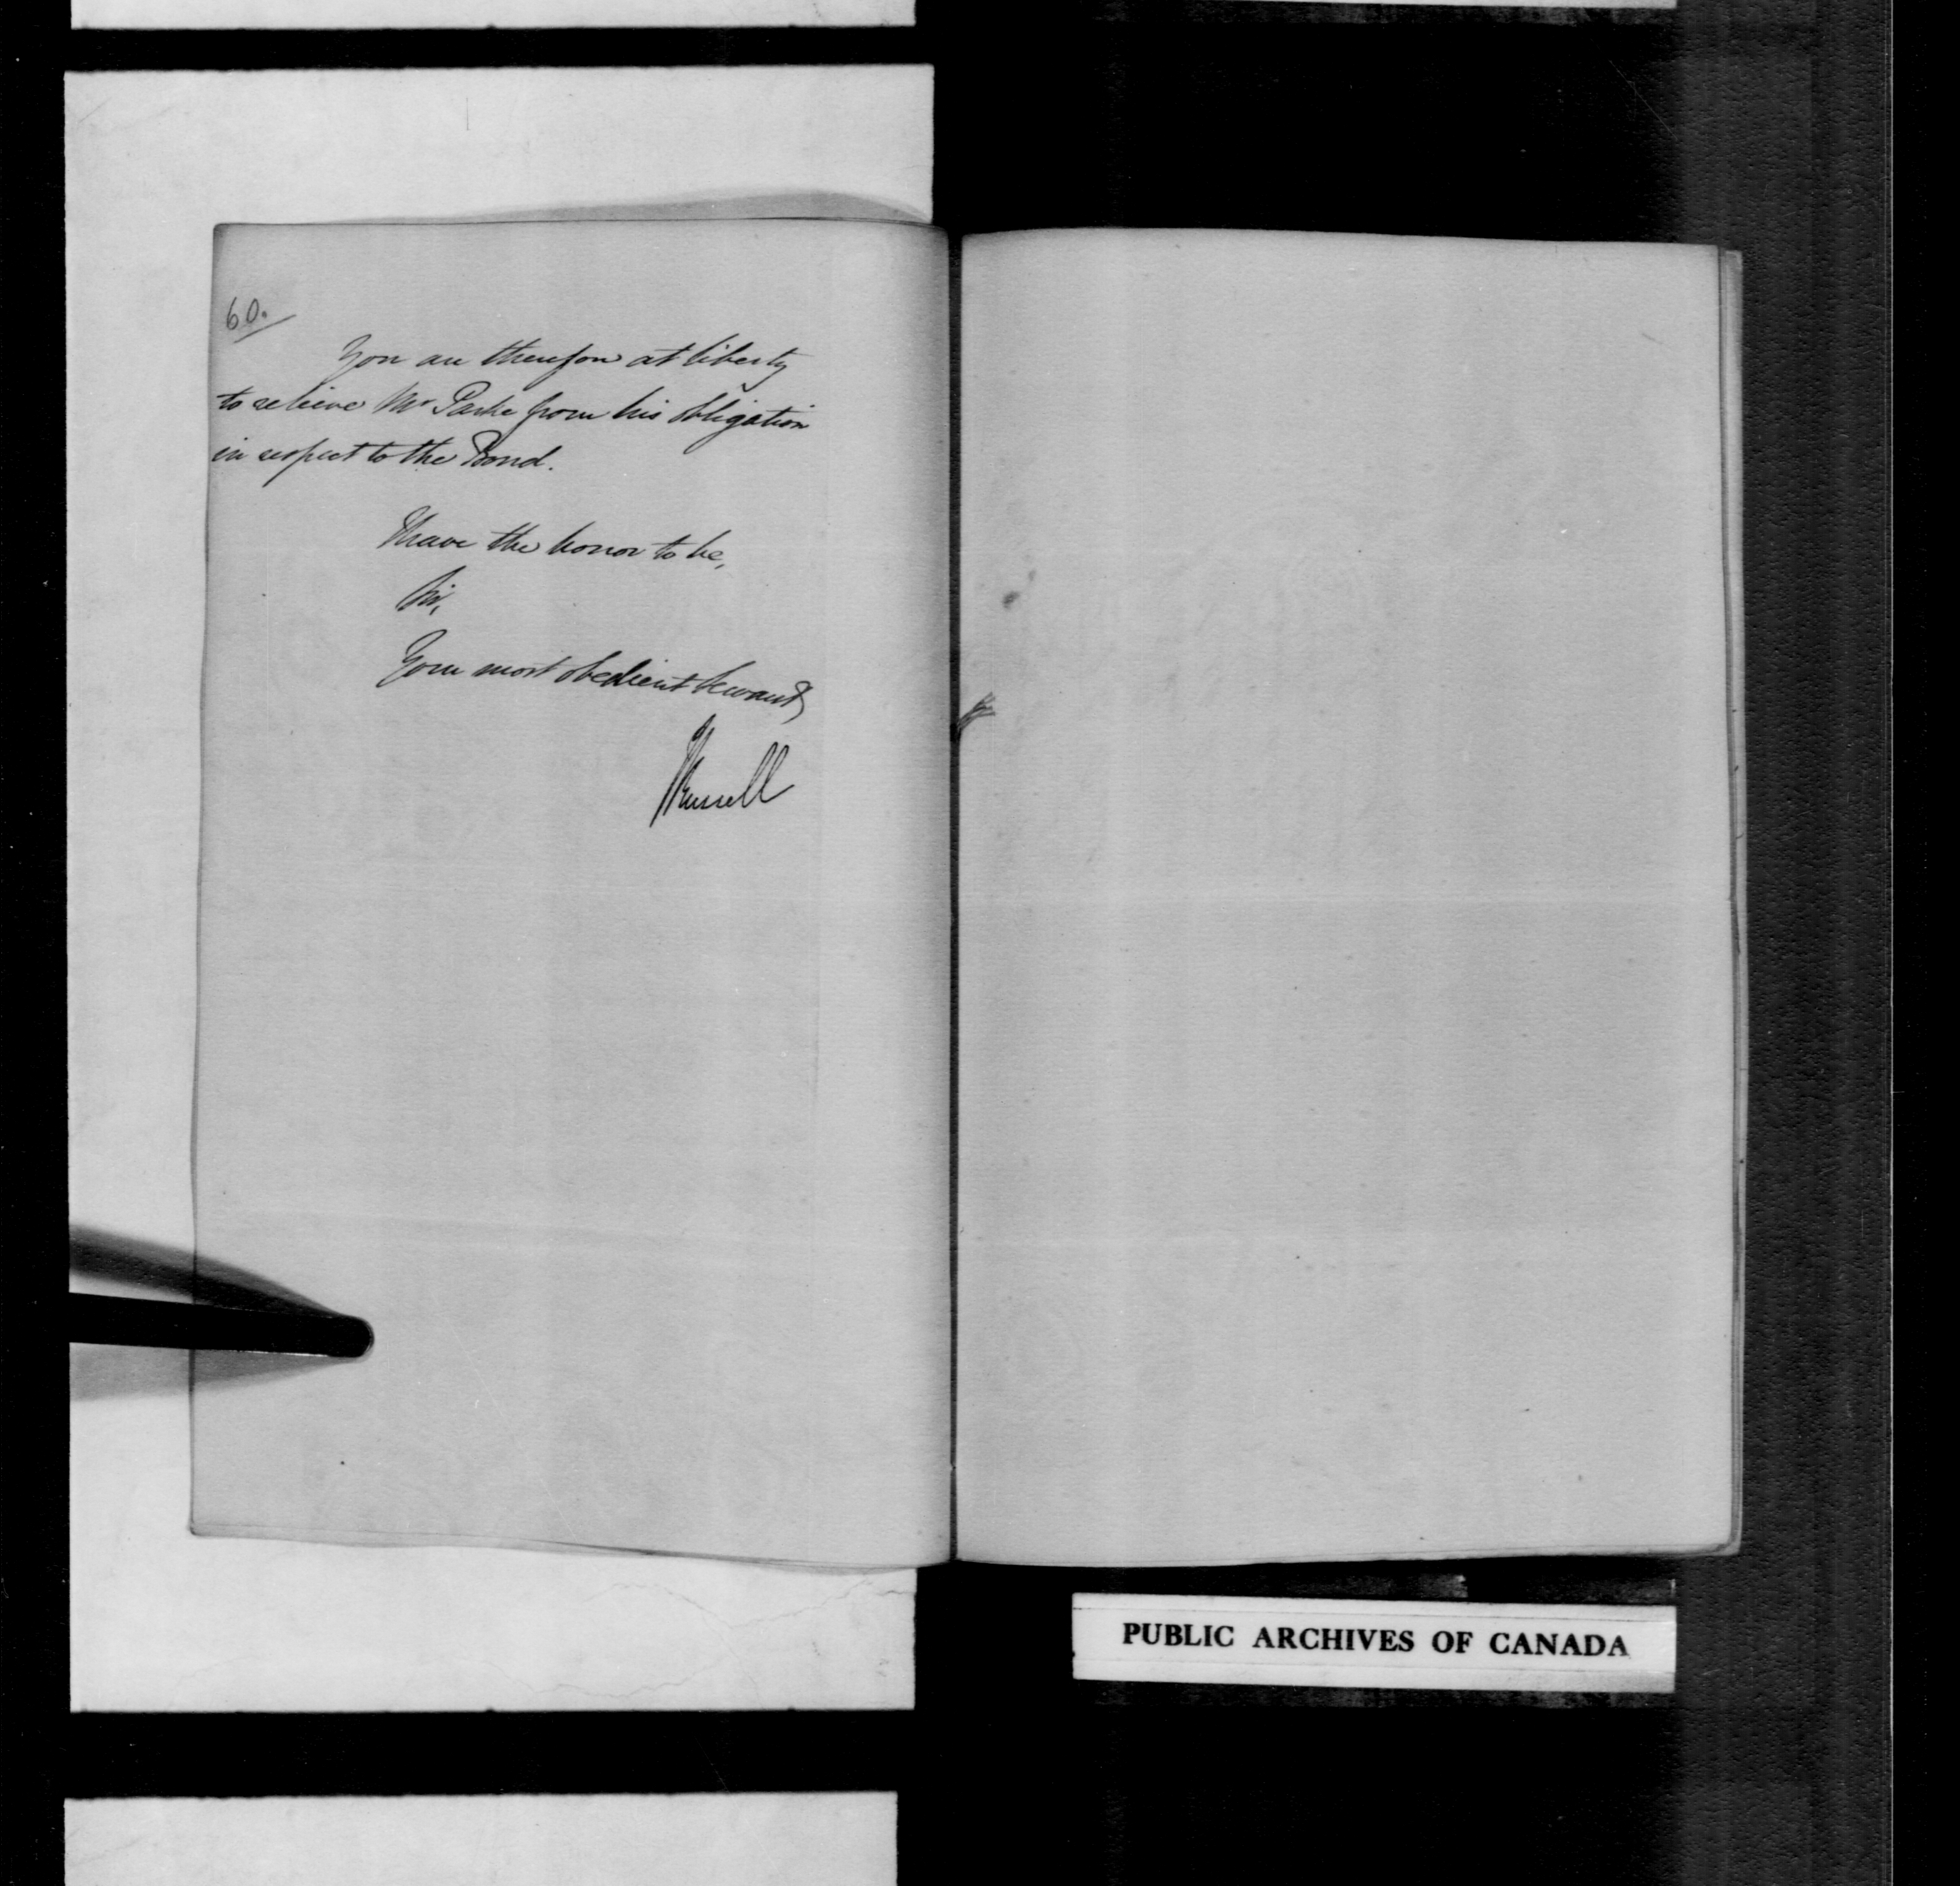 60.
You are therefore at liberty
to relieve Mr Parke from his obligation
in respect to the Bond.
I have the honor to be,
Sir,
Your most obedient Servant,
J Russell
PUBLIC ARCHIVES OF CANADA